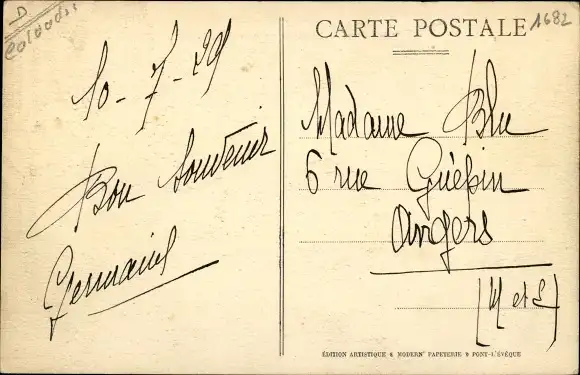 D
Calvados
1682
10-7-29
Bon Souvenir
Germaine
CARTE POSTALE
Madame Blu
6 rue Guépin
Angers
(M et L)
ÉDITION ARTISTIQUE & MODERN' PAPETERIE & PONT-L'ÉVÊQUE